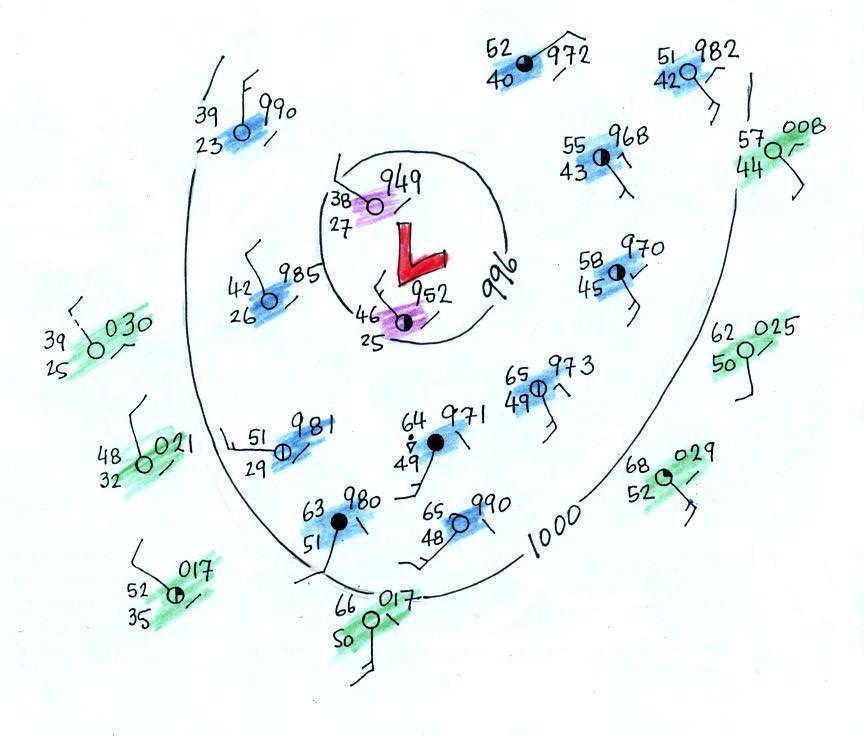 52 972
40
51 982
42
39 990
23
57 008
44
55 968
43
38 949
27
L
996
58 970
45
42 985
26
46 952
25
39 030
25
62 025
50
65 973
49
51 981
29
64 971
49
48 021
32
68 029
52
63 980
51
65 990
48
1000
52 017
35
66 017
50